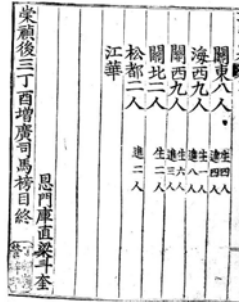 關東八人 生四人 進四人
海西九人 生一人 進八人
關西九人 生六人 進三人
關北二人 生二人
松都二人 進二人
江華
恩門庫直梁斗奎
崇禎後三丁酉增廣司馬榜目終